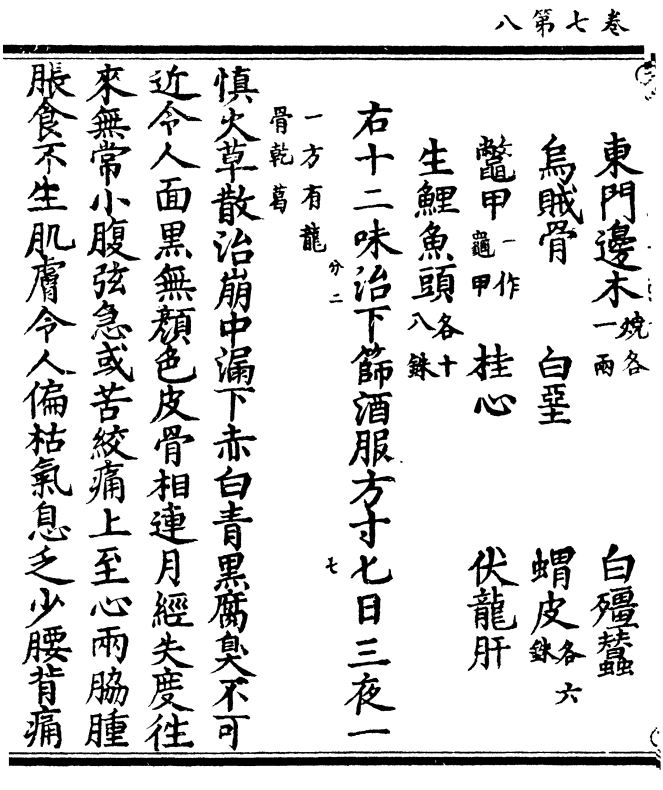 卷七第八
東門邊木燒各一兩　白殭蠶
烏賊骨　白堊　蝟皮各六銖
鼈甲一作龜甲　桂心　伏龍肝
生鯉魚頭各十八銖
右十二味治下篩酒服方寸七日三夜一
一方有龍骨乾葛
分二
七
慎火草散治崩中漏下赤白青黑腐臭不可
近令人面黑無顏色皮骨相連月經失度往
來無常小腹弦急或苦絞痛上至心兩脇腫
脹食不生肌膚令人偏枯氣息乏少腰背痛